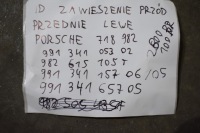 ID ZAWIESZENIE PRZÓD
PRZEDNIE LEWE
PORSCHE 718 982
991 341 053 02
982 615 105 T
991 341 157 06/05
991 341 657 05